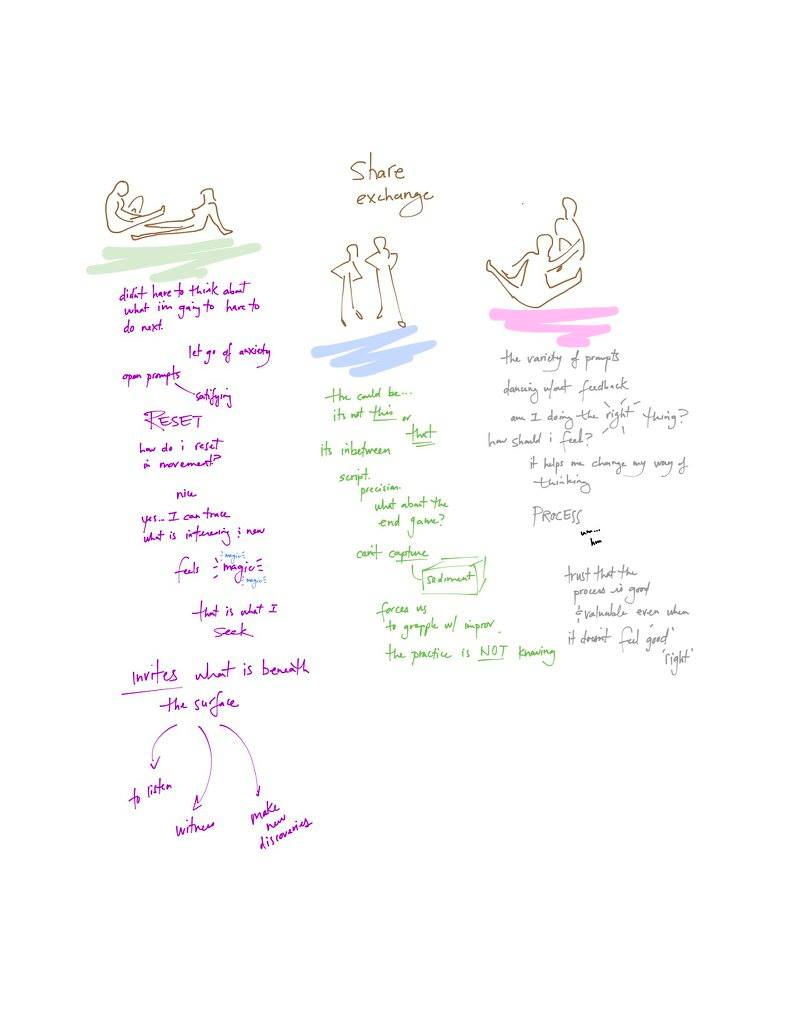 Share
exchange
didn't have to think about
what i'm going to have to
do next.
let go of anxiety
open prompts
satifying
RESET
how do i reset
in movement?
nice
yes... I can trace
what is interesing & new
magic
feels magic
magic
that is what I
seek
invites what is beneath
the surface
to listen
witness
make
new
discoveries
the could be...
its not this or
that
its inbetween
script.
precision.
what about the
end game?
can't capture
sediment
forces us
to grapple w/ improv.
the practice is NOT knowing
the variety of prompts
dancing w/out feedback
am I doing the right thing?
how should i feel?
it helps me change my way of
thinking
PROCESS
um...
hm
trust that the
process is good
& valuable even when
it doesn't feel "good"
"right"